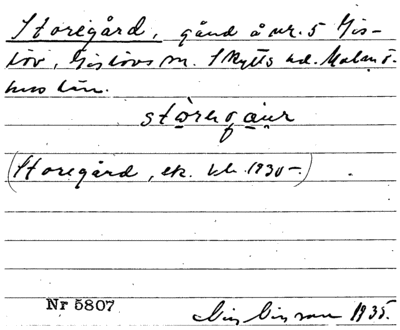 Storegård, gård å nr. 5 Gis-
löv, Gislövs sn. Skytts hd. Malmö-
hus län.
störegaur
(Storegård, ek. kb. 1930-.)
Nr 5807
1935.